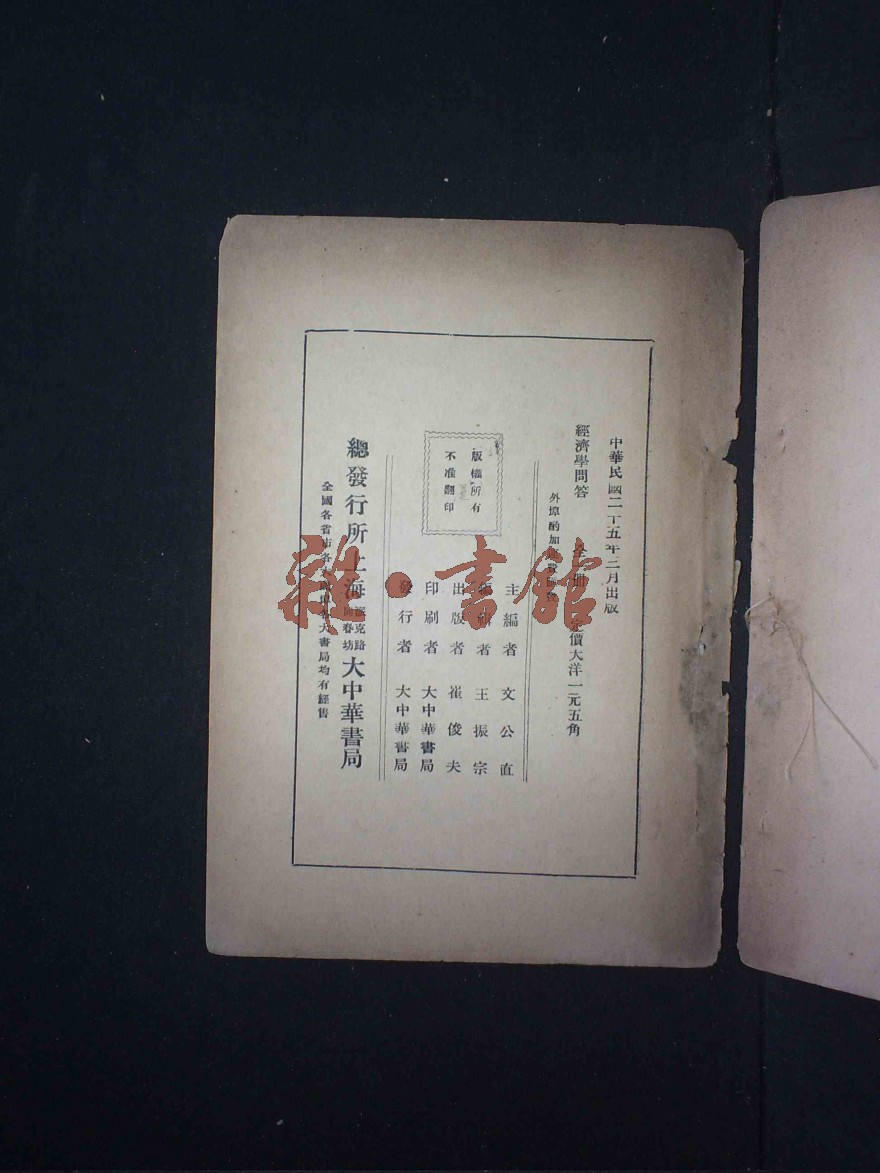 中華民國二十五年三月出版
經濟學問答 全一冊 定價大洋一元五角
外埠酌加
版權所有
不准翻印
主編者 文公直
者 王振宗
出版者 崔俊夫
印刷者 大中華書局
發行者 大中華書局
總發行所上海 克路 春坊 大中華書局
全國各省市各大 書局均有經售
雜·書館